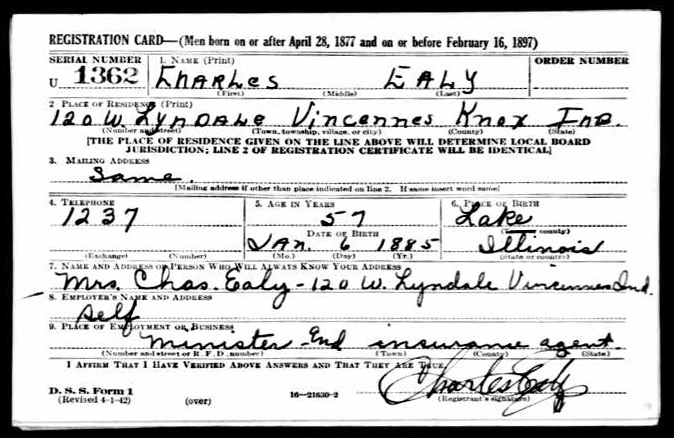 REGISTRATION CARD—(Men born on or after April 28, 1877 and on or before February 16, 1897)
SERIAL NUMBER 1. NAME (Print) ORDER NUMBER
U 1362 CHARLES EALY
(First) (Middle) (Last)
2. PLACE OF RESIDENCE (Print)
120 W. LYNDALE VINCENNES KNOX IND.
(Number and street) (Town, township, village, or city) (County) (State)
[THE PLACE OF RESIDENCE GIVEN ON THE LINE ABOVE WILL DETERMINE LOCAL BOARD
JURISDICTION; LINE 2 OF REGISTRATION CERTIFICATE WILL BE IDENTICAL]
3. MAILING ADDRESS
Same.
[Mailing address if other than place indicated on line 2. If same insert word same]
4. TELEPHONE 5. AGE IN YEARS 6. PLACE OF BIRTH
1237 57 Lake
DATE OF BIRTH (Town or county)
JAN. 6 1885 Illinois
(Exchange) (Number) (Mo.) (Day) (Yr.) (State or country)
7. NAME AND ADDRESS OF PERSON WHO WILL ALWAYS KNOW YOUR ADDRESS
Mrs. Chas. Ealy - 120 W. Lyndale Vincennes Ind.
8. EMPLOYER'S NAME AND ADDRESS
Self
9. PLACE OF EMPLOYMENT OR BUSINESS
Minister - And insurance agent.
(Number and street or R. F. D. number) (Town) (County) (State)
I AFFIRM THAT I HAVE VERIFIED ABOVE ANSWERS AND THAT THEY ARE TRUE.
Charles Ealy
D. S. S. Form 1
(Revised 4-1-42) (over) 16—21630-2 (Registrant's signature)